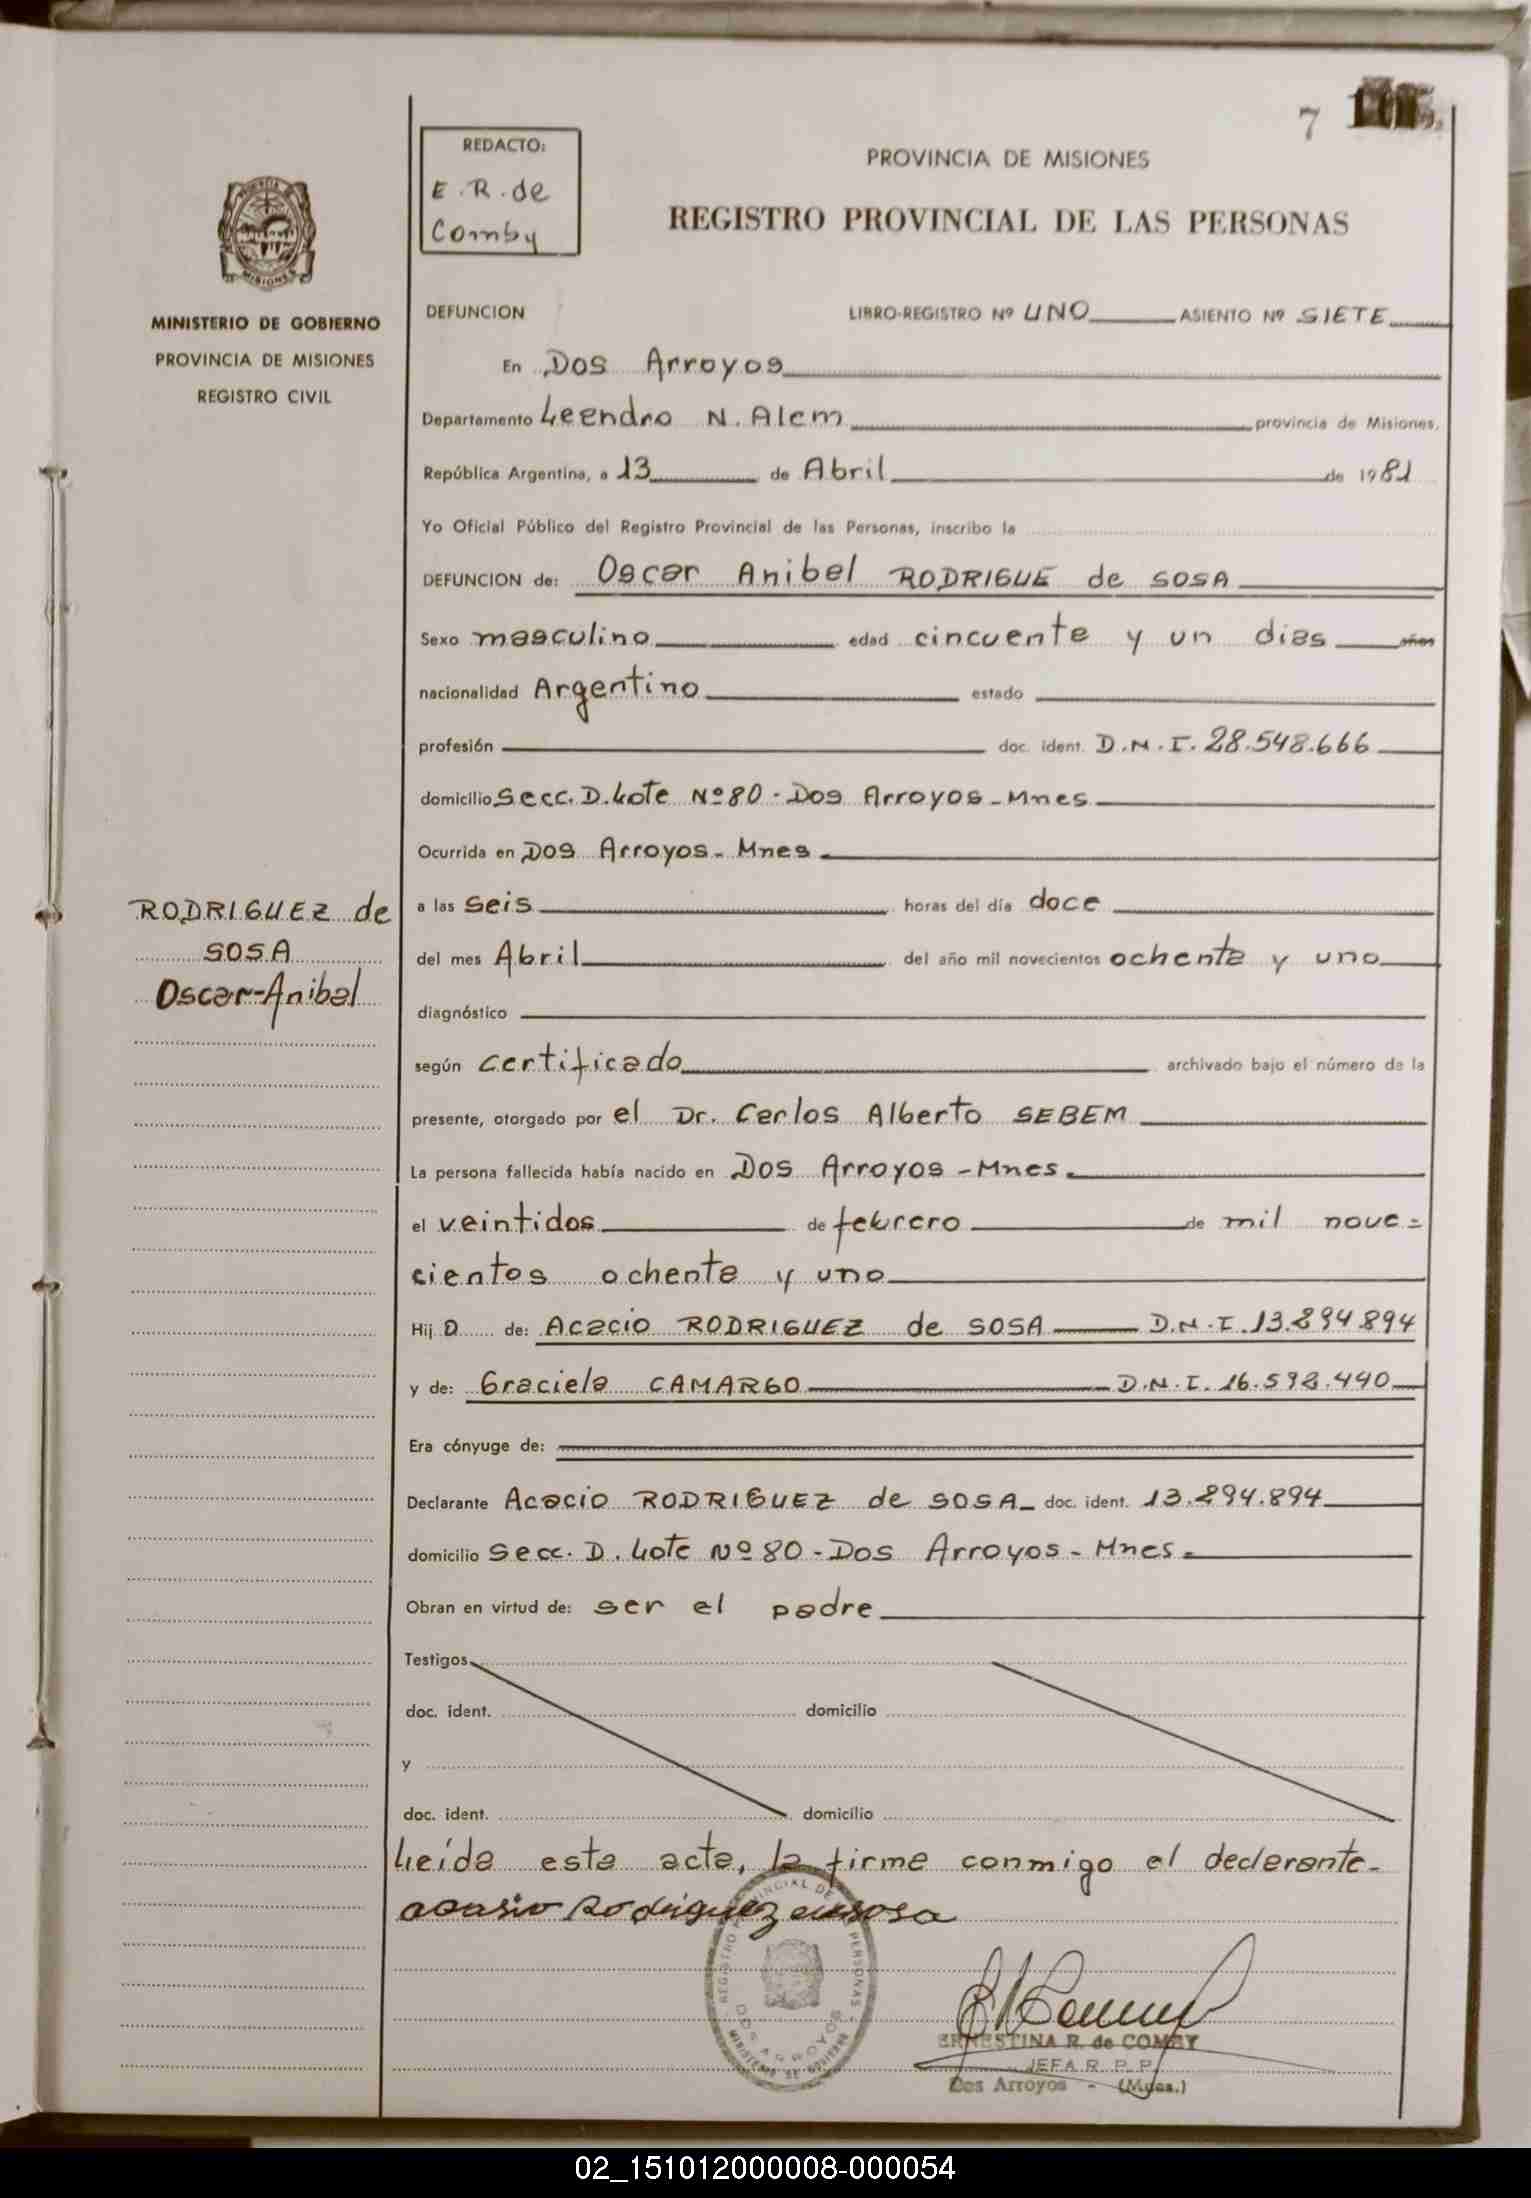 7
REDACTO:
E. R. de
Comby
PROVINCIA DE MISIONES
REGISTRO PROVINCIAL DE LAS PERSONAS
MINISTERIO DE GOBIERNO
PROVINCIA DE MISIONES
REGISTRO CIVIL
DEFUNCION LIBRO-REGISTRO Nº UNO ASIENTO Nº SIETE
En Dos Arroyos
Departamento Leandro N. Alem provincia de Misiones,
República Argentina, a 13 de Abril de 1981
Yo Oficial Público del Registro Provincial de las Personas, inscribo la
DEFUNCION de: Oscar Anibal RODRIGUE de SOSA
Sexo masculino edad cincuenta y un dias años
nacionalidad Argentino estado
profesión doc. ident. D.N.I. 28.548.666
domicilio Secc. D. Lote Nº 80 - Dos Arroyos - Mnes
Ocurrida en Dos Arroyos - Mnes
a las seis horas del día doce
del mes Abril del año mil novecientos ochenta y uno
RODRIGUEZ de
SOSA
Oscar-Anibal
diagnóstico
según certificado archivado bajo el número de la
presente, otorgado por el Dr. Carlos Alberto SEBEM
La persona fallecida había nacido en Dos Arroyos - Mnes
el veintidos de febrero de mil nove=
cientos ochenta y uno
Hij o de: Acacio RODRIGUEZ de SOSA D.N.I. 13.894.894
y de: Graciela CAMARGO D.N.I. 16.598.440
Era cónyuge de:
Declarante Acacio RODRIGUEZ de SOSA doc. ident. 13.894.894
domicilio Secc. D. Lote Nº 80 - Dos Arroyos - Mnes
Obran en virtud de: ser el padre
Testigos
doc. ident. domicilio
y
doc. ident. domicilio
Leída esta acta, la firma conmigo el declarante-
acasio Rodriguez de sosa
REGISTRO PROVINCIAL DE PERSONAS
DOS ARROYOS
MINISTERIO DE GOBIERNO
ERNESTINA R. de COMBY
JEFA R. P. P.
Dos Arroyos - (Mnes.)
02_151012000008-000054